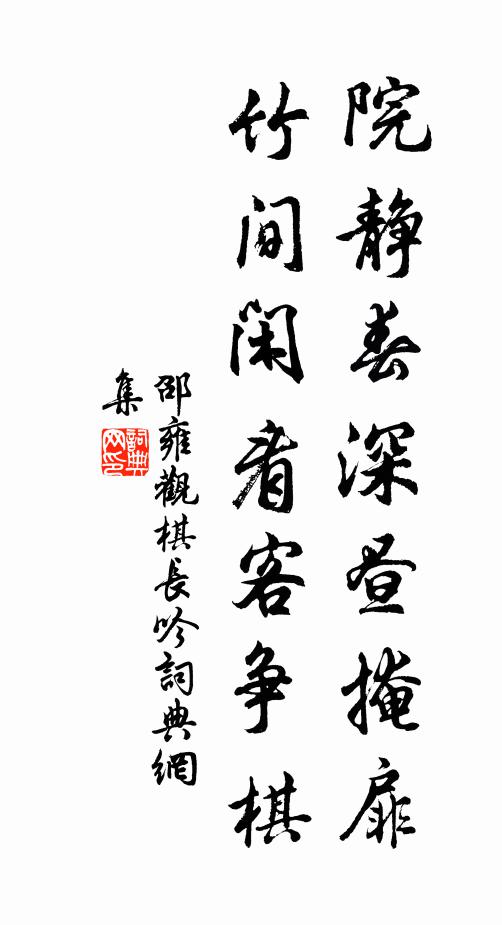 院静春深昼掩扉
竹间闲看客争棋
邵雍觀棋長吟詞典網
集
詞典
网印